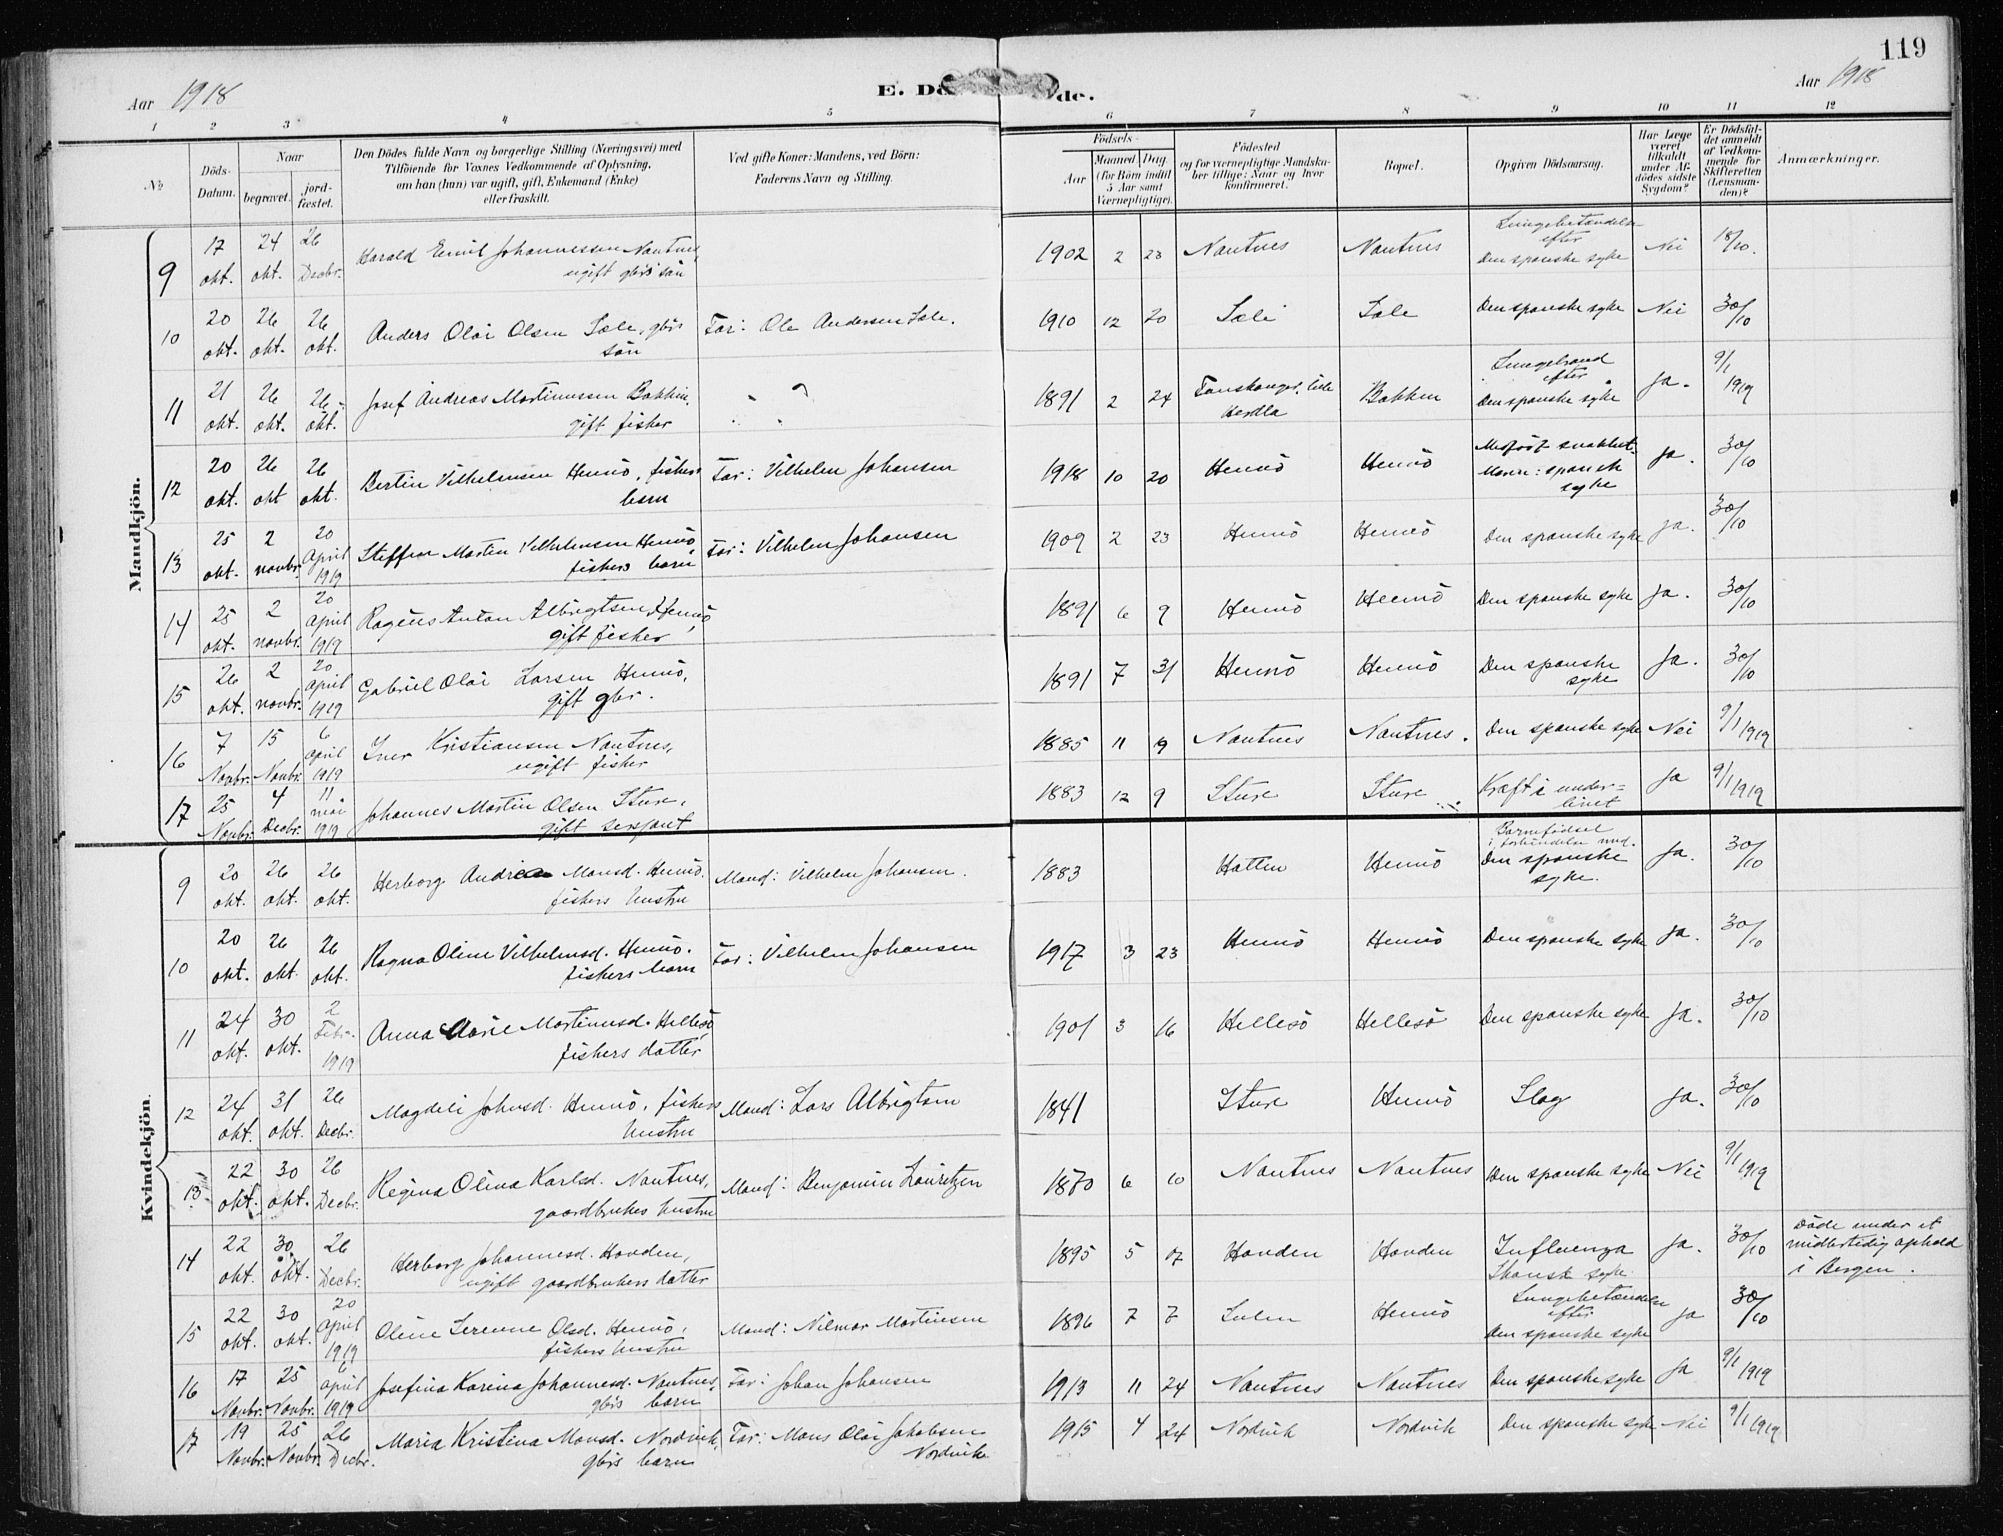 119
Aar 1918
E. Dö
de.
Aar 1918
1 2 3 4 5 6 7 8 9 10 11 12
No
Döds-Datum.
Naar
begravet.
jord-fæstet.
Den Dödes fulde Navn og borgerlige Stilling (Næringsvei) med
Tilföiende for Voxnes Vedkommende af Oplysning,
om han (hun) var ugift, gift, Enkemand (Enke)
eller fraskilt.
Ved gifte Koner: Mandens, ved Börn:
Faderens Navn og Stilling.
Födsels-
Aar
Maaned Dag
(for Börn indtil
5 Aar samt
Værnepligtige).
Födested
og for værnepligtige Mandska-
ber tillige: Naar og hvor
konfirmeret.
Bopæl.
Opgiven Dödsaarsag.
Har Læge
været
tilkaldt
under Af-
dödes sidste
Sygdom?
Er Dödsfal-
det anmeldt
af Vedkom-
mende for
Skifteretten
(Lensman-
den)?
Anmærkninger.
Mandkjön.
9 17 okt. 24 okt. 26 Decbr. Harald Emil Johannessen Nautnes, ugift gbrs sön 1902 2 23 Nautnes Nautnes Lungebetændelse efter Den spanske syke Nei 18/10.
10 20 okt. 26 okt. 26 okt. Anders Olai Olsen Sæle, gbrs sön Far: Ole Andersen Sæle. 1910 12 20 Sæle Sæle Den spanske syke Nei 30/10
11 21 okt. 26 okt. 26 okt. Josef Andreas Martinussen Bakken, gift fisker 1891 2 24 Herdla Bakken efter Den spanske syke Ja. 9/1 1919
12 20 okt. 26 okt 26 okt. Bertin Vilhelmsen Hennö, fiskers barn Far: Vilhelm Johansen 1918 10 20 Hennö Hennö spansk syke Ja. 30/10
13 25 okt. 2 novbr. 20 April 1919 Steffen Martin Vilhelmsen Hennö, fiskers barn Far: Vilhelm Johansen 1909 2 23 Hennö Hennö Den spanske syke Ja. 30/10
14 25 okt. 2 novbr. 20 April 1919 Anton Albrigtsen Hennö, gift fisker 1891 6 9 Hennö Hennö Den spanske syke Ja. 30/10
15 26 okt. 2 novbr. 20 April 1919 Gabriel Olai Larsen Hennö, gift gbr. 1891 7 31 Hennö Hennö Den spanske syke Ja. 30/10
16 7 Novbr. 15 Novbr. 6 april 1919 Iver Kristiansen Nautnes, ugift fisker 1885 11 19 Nautnes Nautnes. Den spanske syke Nei 9/1 1919
17 25 Novbr. 4 Decbr. 11 mai 1919 Johannes Martin Olsen Sture, gift sersjant 1883 12 9 Sture Sture Kræft i under-livet Ja 9/1 1919
Kvindekjön.
9 20 okt. 26 okt. 26 okt. Herborg Andrea Monsd. Hennö. fiskers hustru Mand: Vilhelm Johansen. 1883 Hatten Hennö Barnefödsel i forbindelse med. Den spanske syke. Ja. 30/10
10 20 okt. 26 okt. 26 okt. Ragna Oline Vilhelmsd. Hennö. fiskers barn Far: Vilhelm Johansen 1917 3 23 Hennö Hennö Den spanske syke Ja. 30/10
11 24 okt. 30 okt. 2 Febr. 1919 Anna Marie Martinusd. Hellesö, fiskers datter 1901 3 16 Hellesö Hellesö Den spanske syke Ja. 30/10
12 24 okt. 31 okt. 26 Decbr. Magdeli Johnsd. Hennö, fiskers hustru Mand: Lars Albrigtsen 1841 Sture Hennö Slag Ja. 30/10
13 22 okt. 30 okt. 26 Decbr. Regina Olina Karlsd. Nautnes, gaardbrukers hustru Mand: Benjamin Lauritzen 1870 6 10 Nautnes Nautnes Den spanske syke Nei 9/1 1919
14 22 okt. 30 okt. 26 Decbr. Herborg Johannesd. Hovden, ugift gaardbrukers datter 1895 5 07 Hovden Hovden Influenza Spansk syke Ja. 30/10 Döde under et midlertidig ophold i Bergen.
15 22 okt. 30 okt. 20 April 1919 Oline Serenne Olsd. Hennö, fiskers hustru Mand: Nilmar Martinsen 1896 7 7 Sulen Hennö Lungebetændelse efter Den spanske syke Ja 30/10
16 17 Novbr. 25 Novbr. 6 april 1919 Josefina Karina Johannesd. Nautnes, gbrs barn Far: Johan Johansen 1913 11 24 Nautnes Nautnes Den spanske syke Ja 9/1 1919
17 19 Novbr. 25 Novbr. 26 Decbr. Maria Kristina Monsd. Nordvik, gbrs barn Far: Mons Olai Jakobsen Nordvik 1915 4 24 Nordvik Nordvik Den spanske syke Nei 9/1 1919